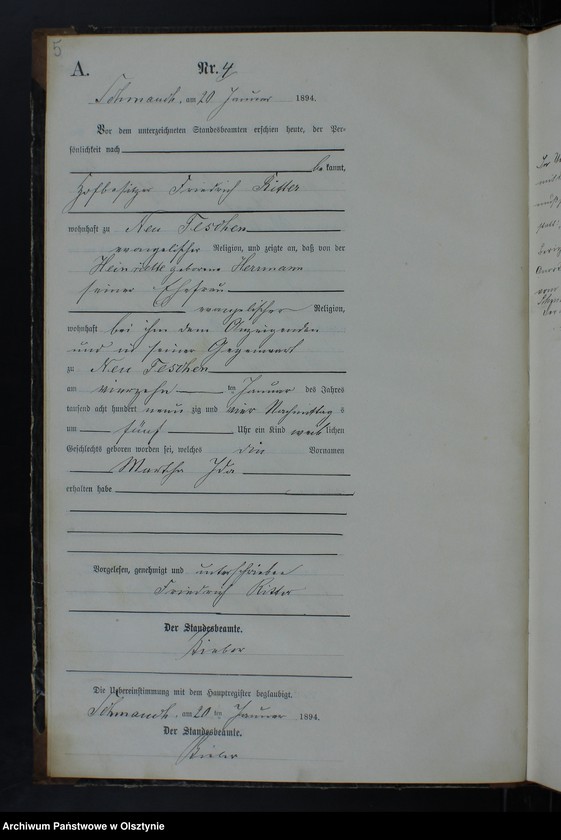 5
A.
Nr. 4
Schmauch, am 20 Januar 1894.
Vor dem unterzeichneten Standesbeamten erschien heute, der Per-
sönlichkeit nach
be kannt,
Hofbesitzer Friedrich Ritter
wohnhaft zu Neu Teschen
evangelischer Religion, und zeigte an, daß von der
Heinriette geborene Herrmann
seiner Ehefrau
evangelischer Religion,
wohnhaft bei ihm dem Anzeigenden
und in seiner Gegenwart
zu Neu Teschen
am vierzehn ten Januar des Jahres
tausend acht hundert neun zig und vier Nachmittag s
um fünf Uhr ein Kind weib lichen
Geschlechts geboren worden sei, welches die Vornamen
Martha Ida
erhalten habe
Vorgelesen, genehmigt und unterschrieben
Friedrich Ritter
Der Standesbeamte.
Die Uebereinstimmung mit dem Hauptregister beglaubigt.
Schmauch, am 20 ten Januar 1894.
Der Standesbeamte.
Archiwum Państwowe w Olsztynie